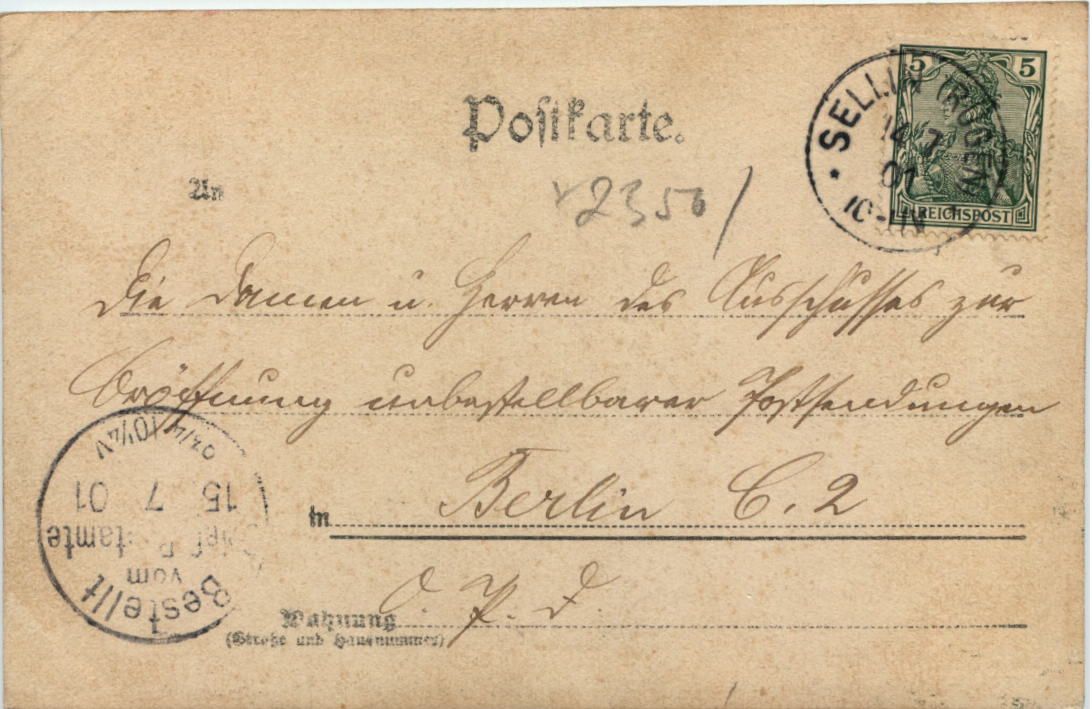 5 5
REICHSPOST
SELLIN (RÜGEN)
14 7
01
10-11N
Postkarte.
An
2350 /
Die Damen u. Herren des Ausschusses zur
Eröffnung unbestellbarer Postsendungen
in Berlin C. 2
O. P. D.
Wohnung
(Straße und Hausnummer)
Bestellt
vom
Postamte
15 7 01